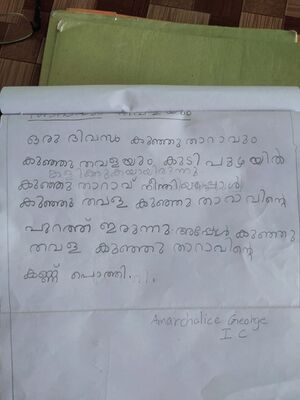 ഒരു ദിവസം കുഞ്ഞു താറാവും
കുഞ്ഞു തവളയും കൂടി പുഴയിൽ
കളിക്കുകയായിരുന്നു
കുഞ്ഞു താറാവ് നീന്തിയപ്പോൾ
കുഞ്ഞു തവള കുഞ്ഞു താറാവിന്റെ
പുറത്ത് ഇരുന്നു. അപ്പേൾ കുഞ്ഞു
തവള കുഞ്ഞു താറാവിന്റെ
കണ്ണ് പൊത്തി.
Anarchalice George
I C